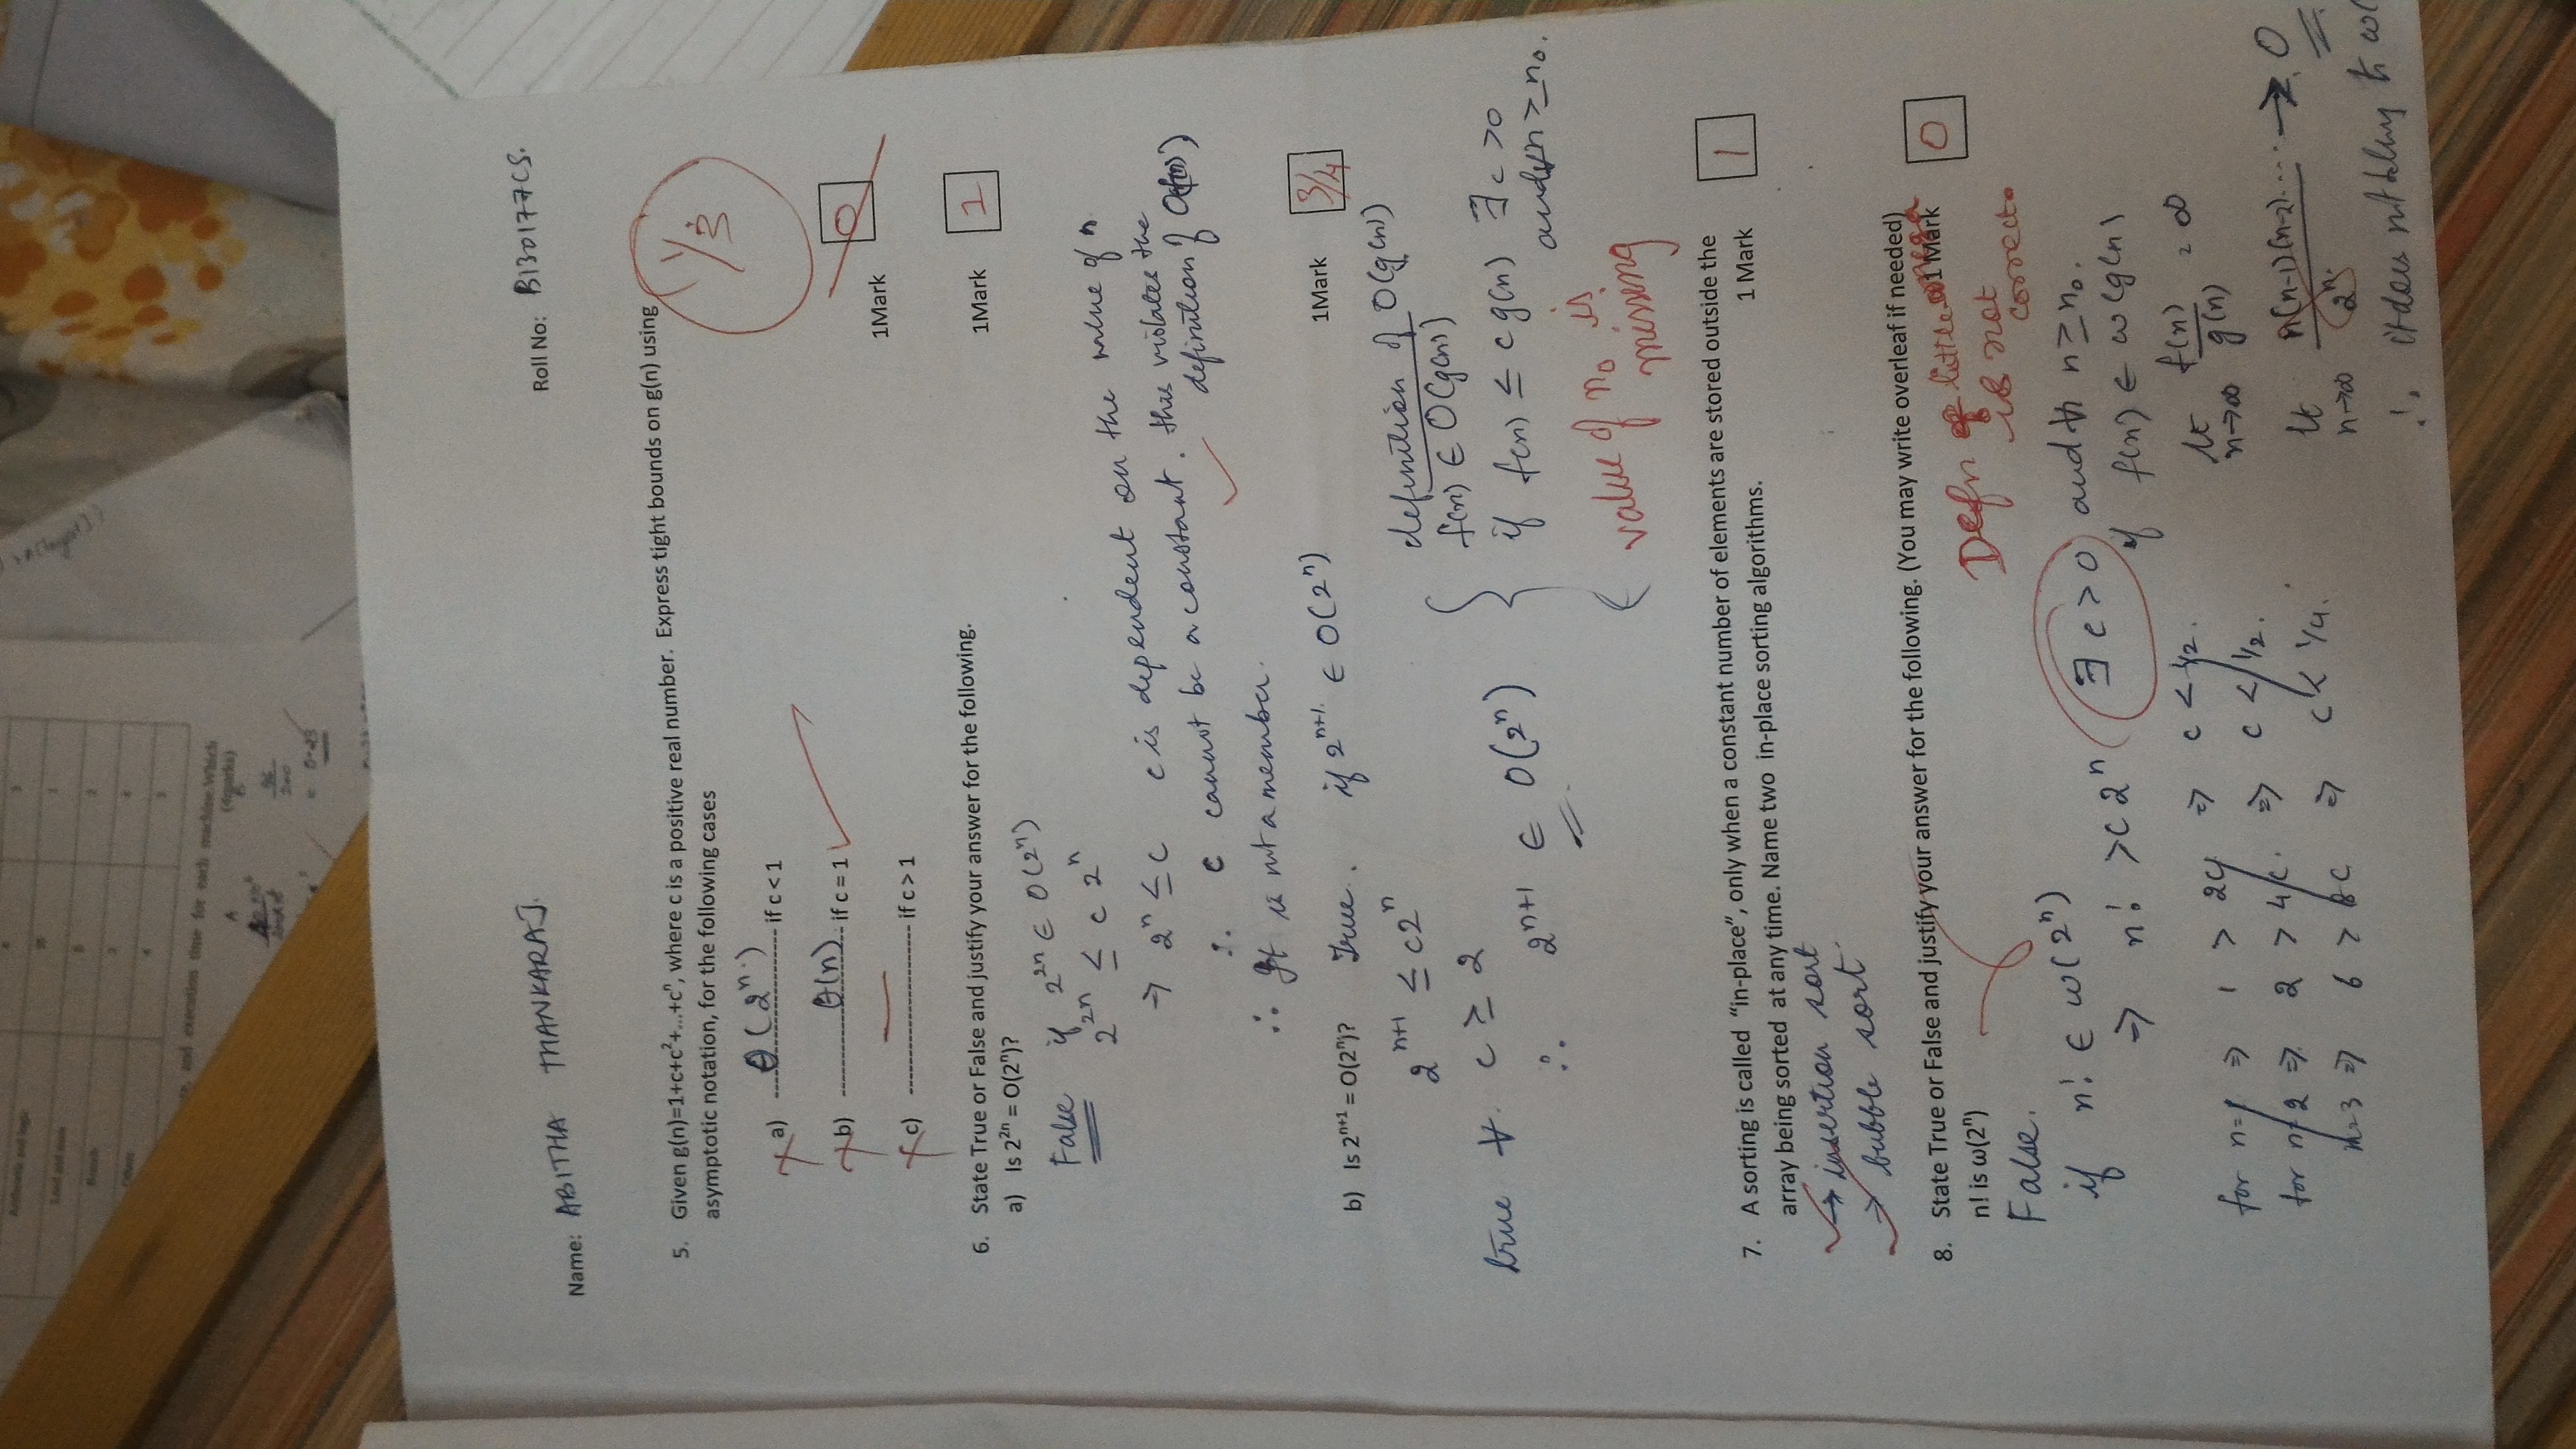 Name: ABITHA THANKARAJ. Roll No: B130177CS.
5. Given g(n)=1+c+c²+...+cⁿ, where c is a positive real number. Express tight bounds on g(n) using
asymptotic notation, for the following cases
1/3
a) θ(2ⁿ) if c < 1
0
b) θ(n) if c = 1
1Mark
c) if c > 1
6. State True or False and justify your answer for the following.
1Mark
1
a) Is 2²ⁿ = O(2ⁿ)?
False if 2²ⁿ ∈ O(2ⁿ)
2²ⁿ ≤ c 2ⁿ
→ 2ⁿ ≤ c c is dependent on the value of n
∴ c cannot be a constant. this violates the
definition of
∴ It is not a member.
b) Is 2ⁿ⁺¹ = O(2ⁿ)? True. if 2ⁿ⁺¹ ∈ O(2ⁿ)
1Mark
3/4
2ⁿ⁺¹ ≤ c2ⁿ
definition of O(g(n))
f(n) ∈ O(g(n))
true ∀ c ≥ 2
if f(n) ≤ c g(n) ∃ c >0
and n ≥ n₀.
∴ 2ⁿ⁺¹ ∈ O(2ⁿ)
value of n₀ is
missing
7. A sorting is called "in-place", only when a constant number of elements are stored outside the
array being sorted at any time. Name two in-place sorting algorithms.
1 Mark
1
→ insertion sort
→ bubble sort.
8. State True or False and justify your answer for the following. (You may write overleaf if needed)
n! is ω(2ⁿ)
1 Mark
0
Defn of little omega
is not
correct.
False.
if n! ∈ ω(2ⁿ)
⇒ n! > c 2ⁿ ∃ c > 0 and n ≥ n₀.
if f(n) ∈ ω(g(n))
for n=1 ⇒ 1 > 2c ⇒ c < 1/2.
lt n→∞ f(n)/g(n) = ∞
for n=2 ⇒ 2 > 4c. ⇒ c < 1/2.
n=3 ⇒ 6 > 8c ⇒ c < 1/4.
lt n→∞ n(n-1)(n-2)..../2ⁿ → 0
∴ it does not belong to ω(